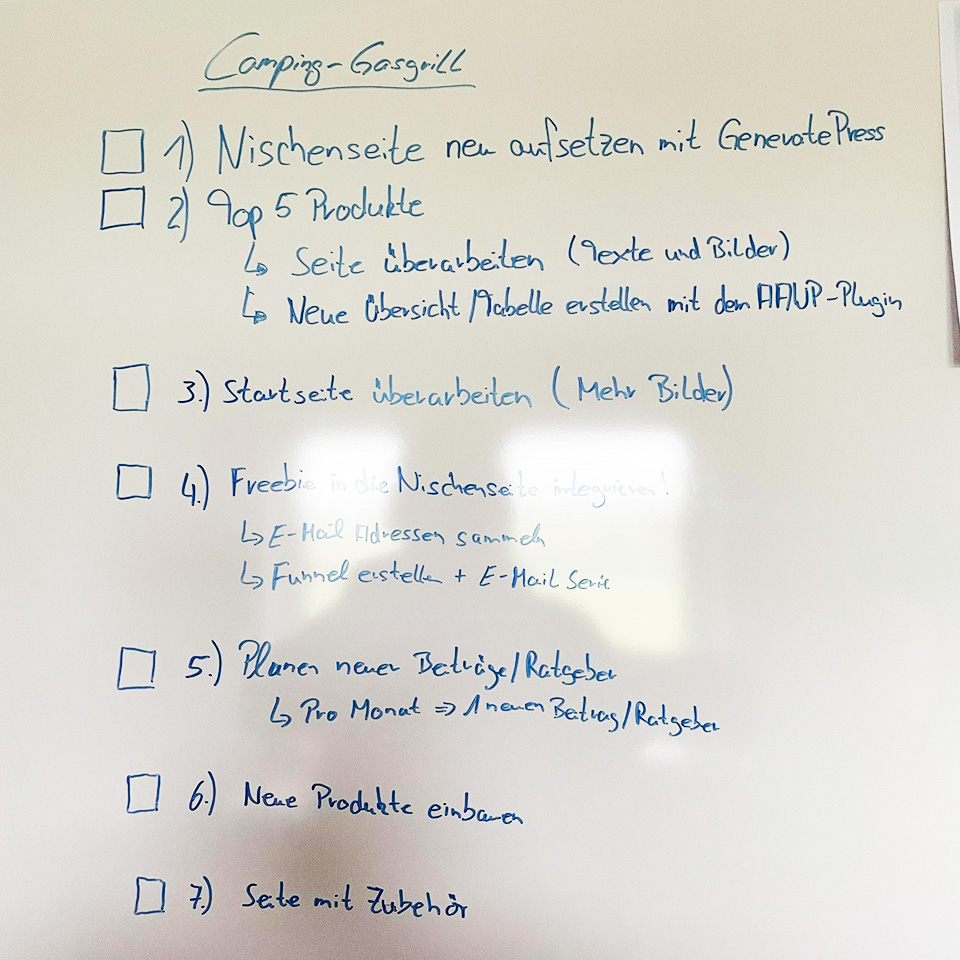 Camping-Gasgrill
1) Nischenseite neu aufsetzen mit GeneratePress
2) Top 5 Produkte
↳ Seite überarbeiten (Texte und Bilder)
↳ Neue Übersicht/Tabelle erstellen mit dem AAWP-Plugin
3.) Startseite überarbeiten (Mehr Bilder)
4.) Freebie in die Nischenseite integrieren!
↳ E-Mail Adressen sammeln
↳ Funnel erstellen + E-Mail Serie
5.) Planen neuer Beträge/Ratgeber
↳ Pro Monat ⇒ 1 neuen Beitrag/Ratgeber
6.) Neue Produkte einbauen
7.) Seite mit Zubehör